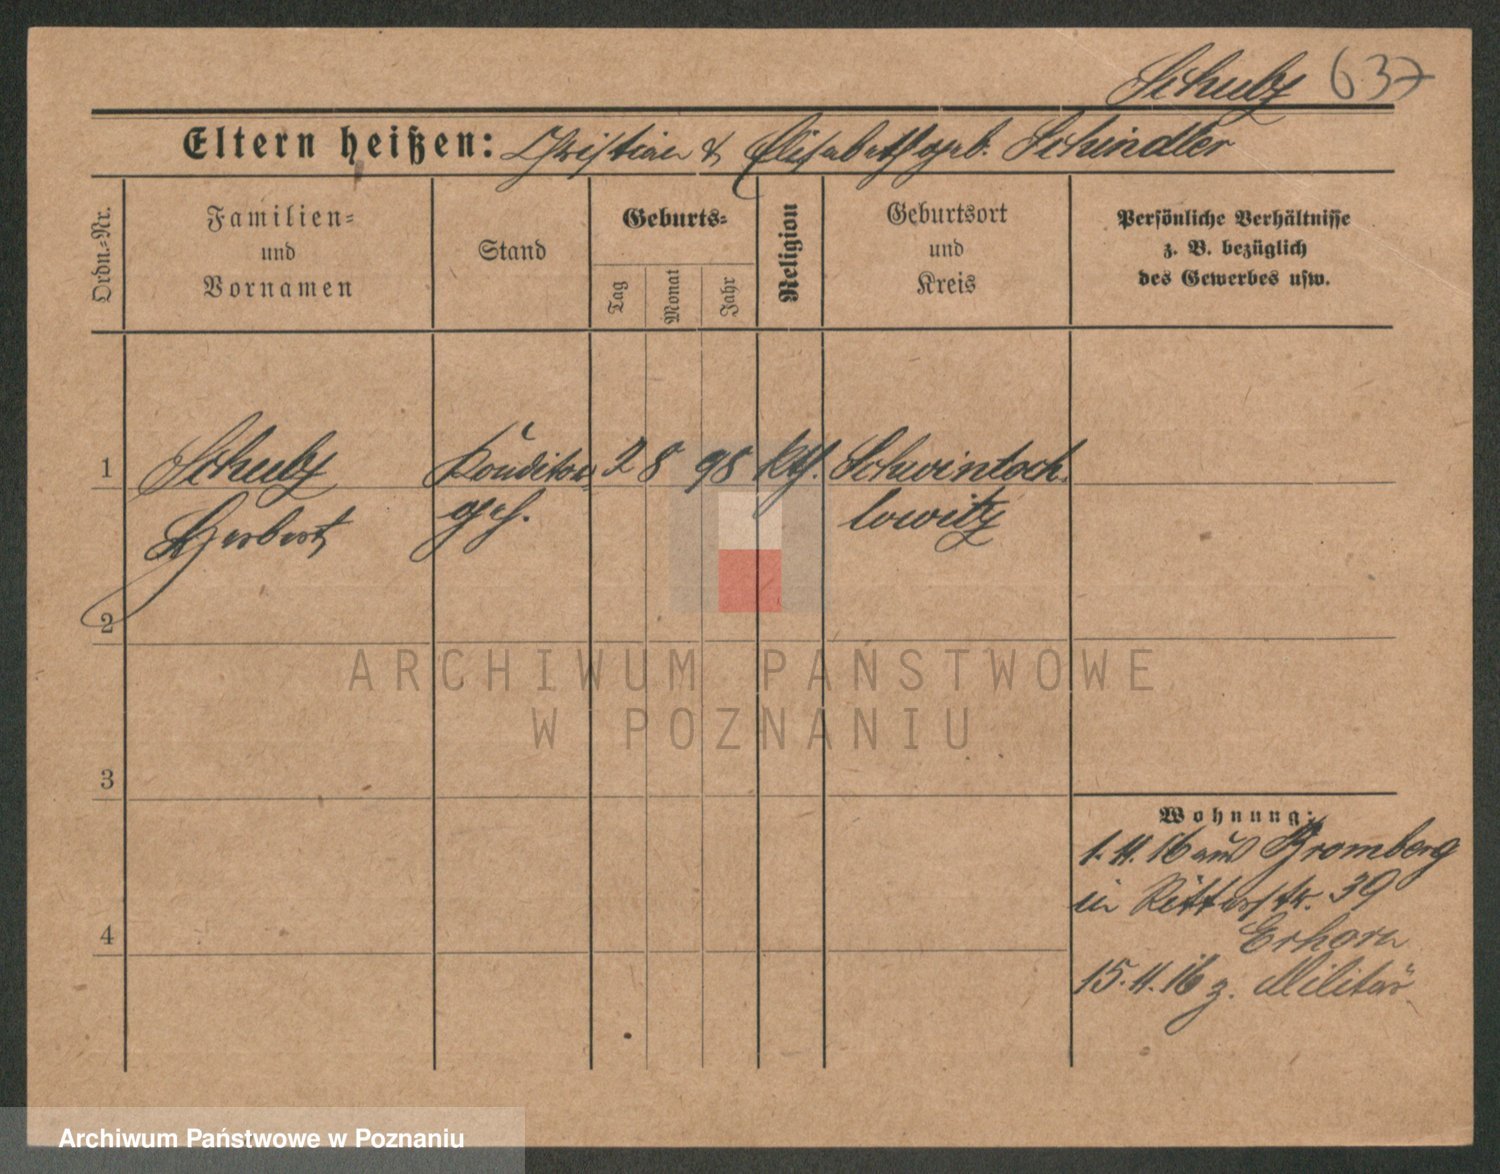 Schulz 637
Eltern heißen: Christian & Elisabeth geb. Schindler
Ordn.-Nr.
Familien-
und
Vornamen
Stand
Geburts-
Tag
Monat
Jahr
Religion
Geburtsort
und
Kreis
Persönliche Verhältnisse
z. B. bezüglich
des Gewerbes usw.
1 Schulz Konditor- 2 8 98 kth. Schwientoch-
Herbert geh. lowitz
2
3
4
Wohnung:
1.11.16 aus Bromberg
in Ritterstr. 39
Erhorn
15.11.16 z. Militär
ARCHIWUM PAŃSTWOWE
W POZNANIU
Archiwum Państwowe w Poznaniu